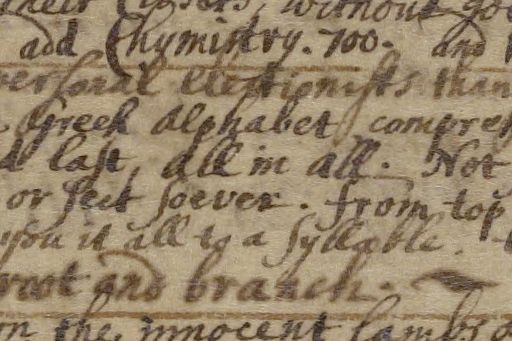 without go
add Chymistry. 700. and
ersonal Electionists than
Greek alphabet compreh
d last, all in all. Not
or sect soever. from top
you it all to a syllable.
root and branch.
on the innocent lambs o